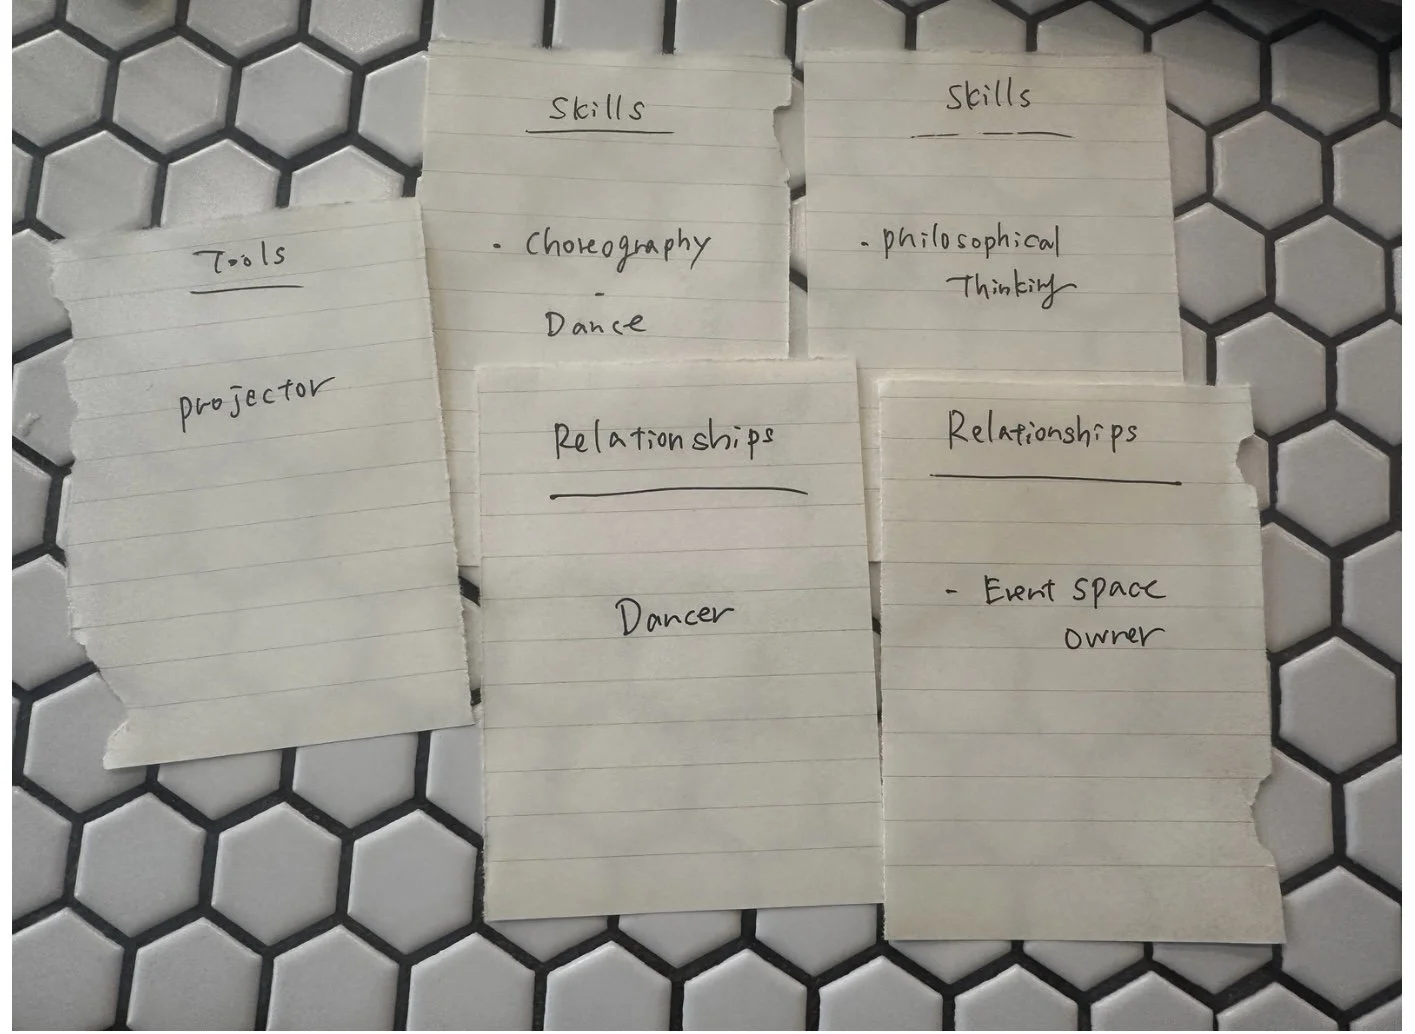 Tools
projector
Skills
· Choreography
-
Dance
Skills
· philosophical
Thinking
Relationships
Dancer
Relationships
- Event space
owner